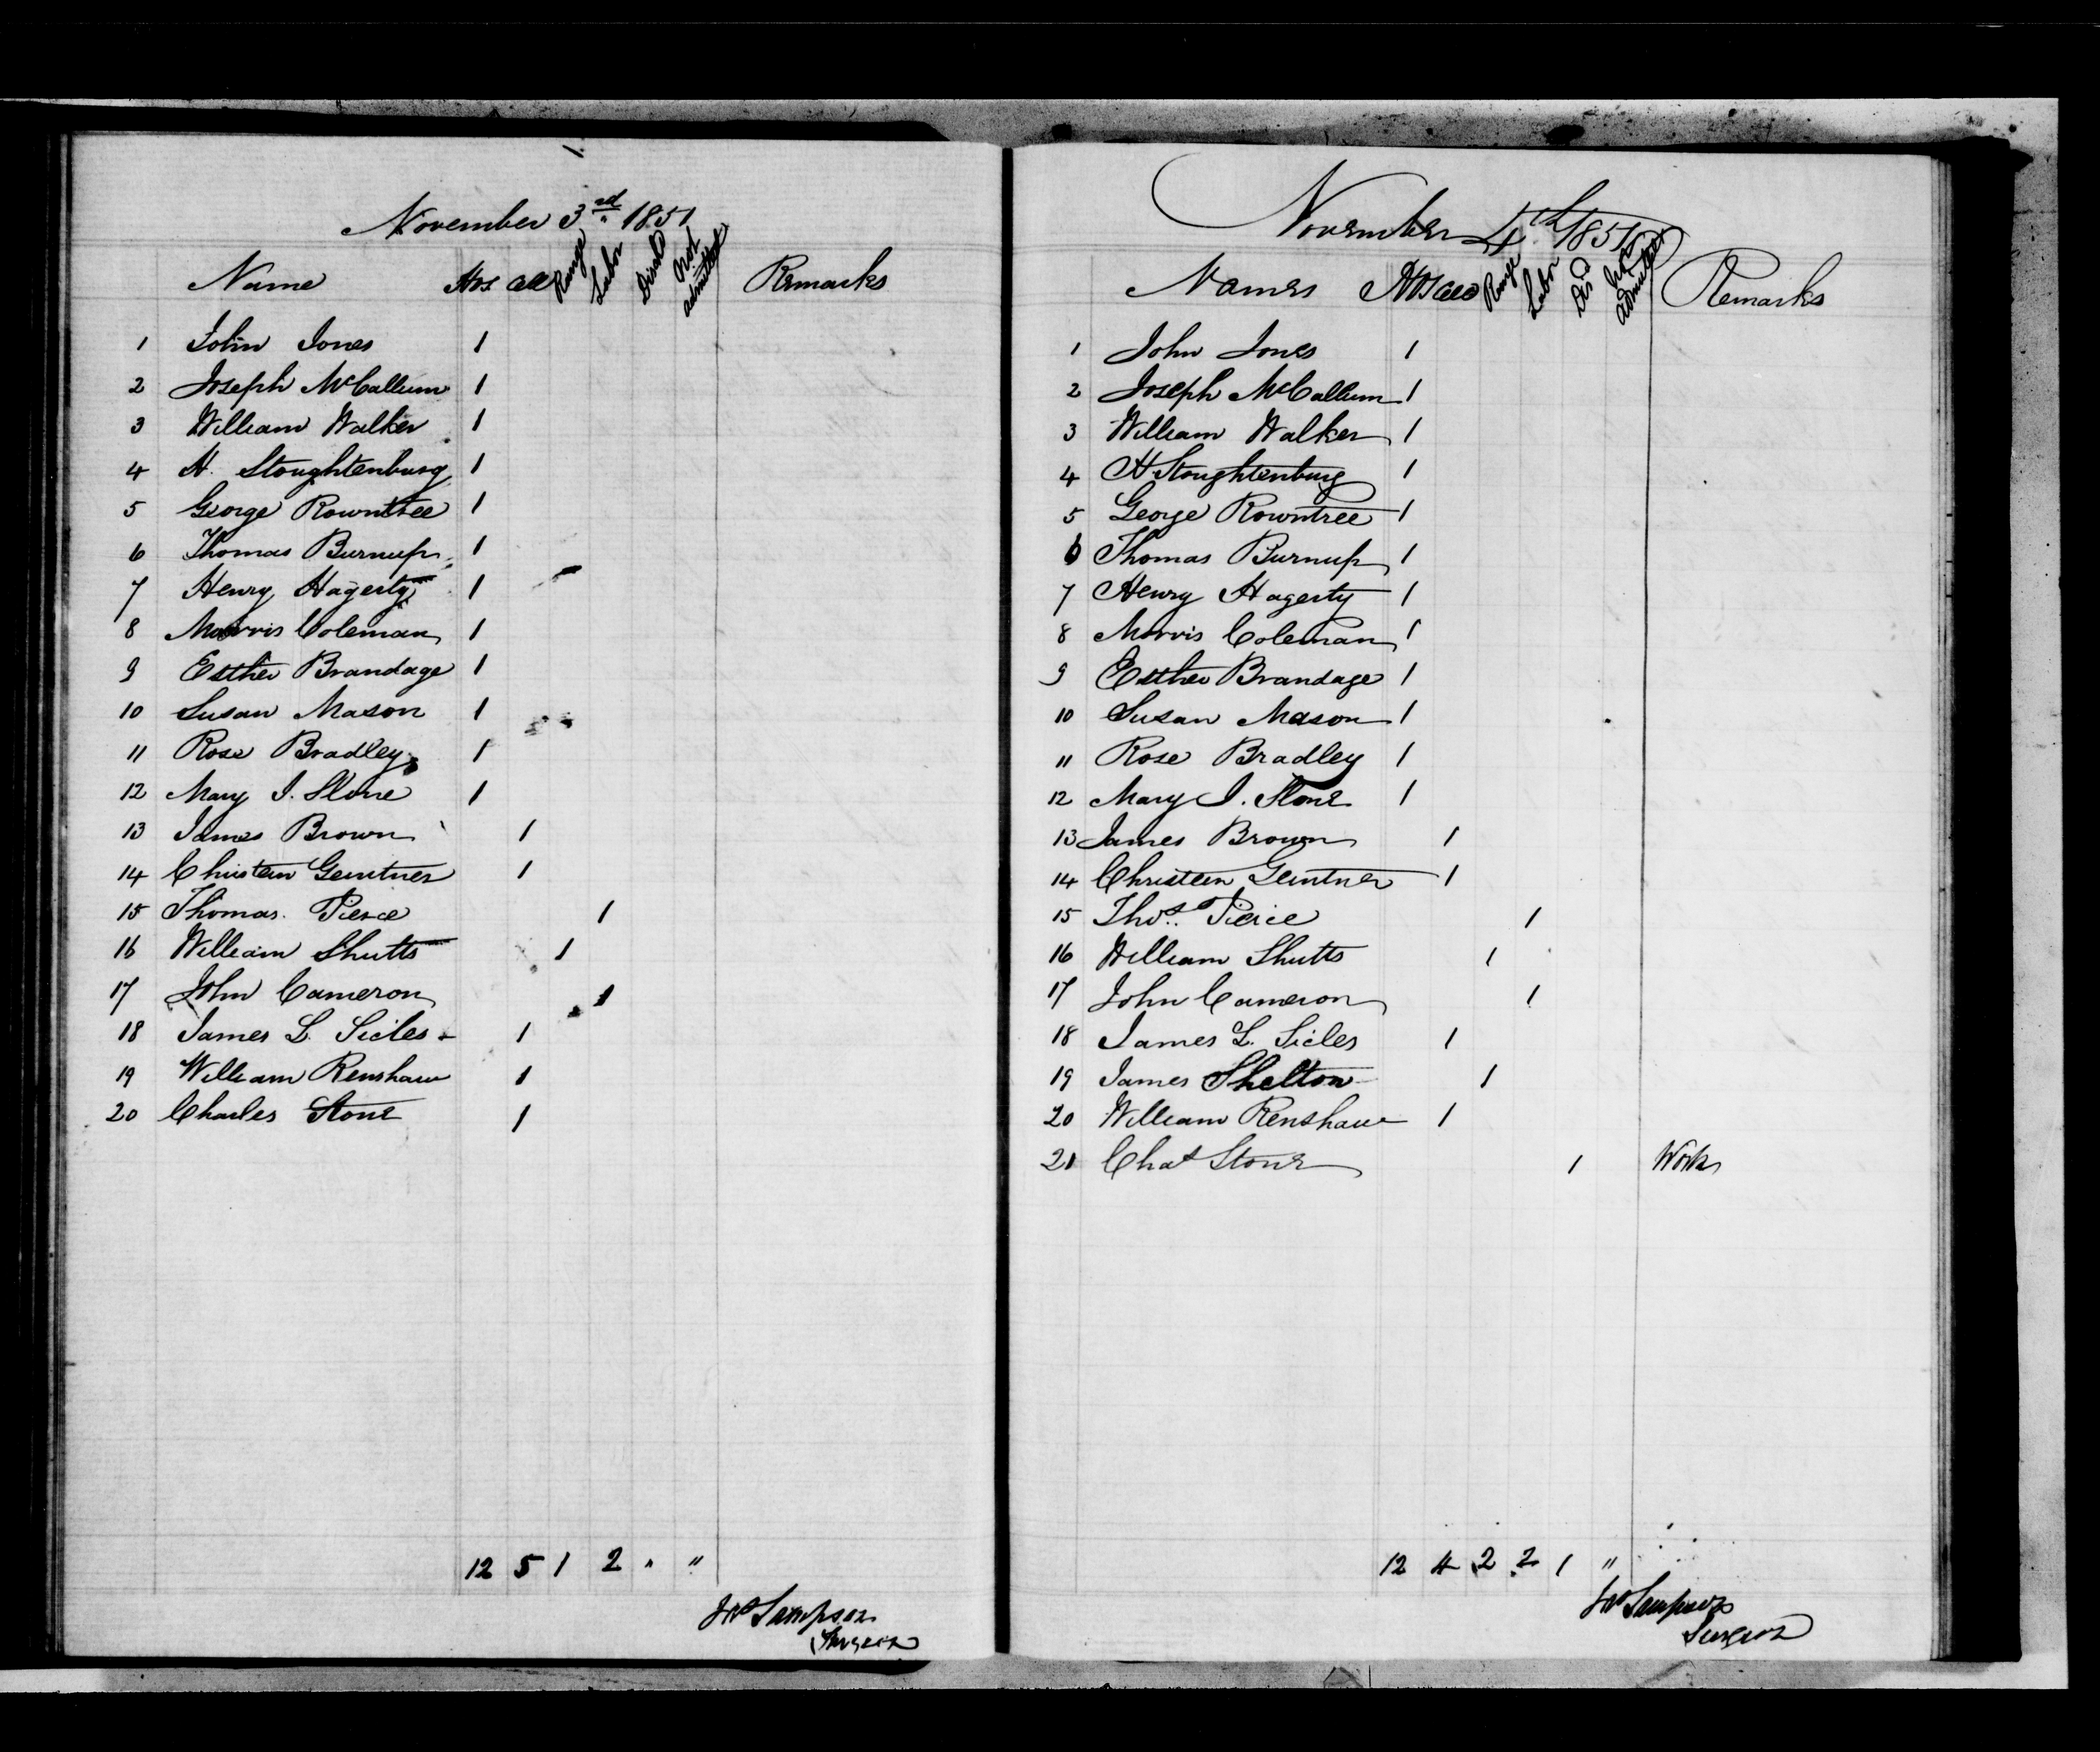 November 3rd 1851
Name Hos. Cell Range Labor Discd Not admitted Remarks
1 John Jones 1
2 Joseph McCallum 1
3 William Walker 1
4 H. Stoughtenburg 1
5 George Rowntree 1
6 Thomas Burnup 1
7 Henry Hagerty 1
8 Morris Coleman 1
9 Esther Brandage 1
10 Susan Mason 1
11 Rose Bradley 1
12 Mary J. Stone 1
13 James Brown 1
14 Christeen Geintner 1
15 Thomas Pierce 1
16 William Shutts 1
17 John Cameron 1
18 James L. Sicles 1
19 William Renshaw 1
20 Charles Stone 1
12 5 1 2 " "
Jas Sampson
Surgeon
November 4th 1851
Names Hos Cell Range Labor Disd Not admitted Remarks
1 John Jones 1
2 Joseph McCallum 1
3 William Walker 1
4 H Stoughtenburg 1
5 George Rowntree 1
6 Thomas Burnup 1
7 Henry Hagerty 1
8 Morris Coleman 1
9 Esther Brandage 1
10 Susan Mason 1
11 Rose Bradley 1
12 Mary J. Stone 1
13 James Brown 1
14 Christeen Geintner 1
15 Thos. Pierce 1
16 William Shutts 1
17 John Cameron 1
18 James L. Sicles 1
19 James Shelton 1
20 William Renshaw 1
21 Chas Stone 1 Work
12 4 2 2 1 "
Jas Sampson
Surgeon